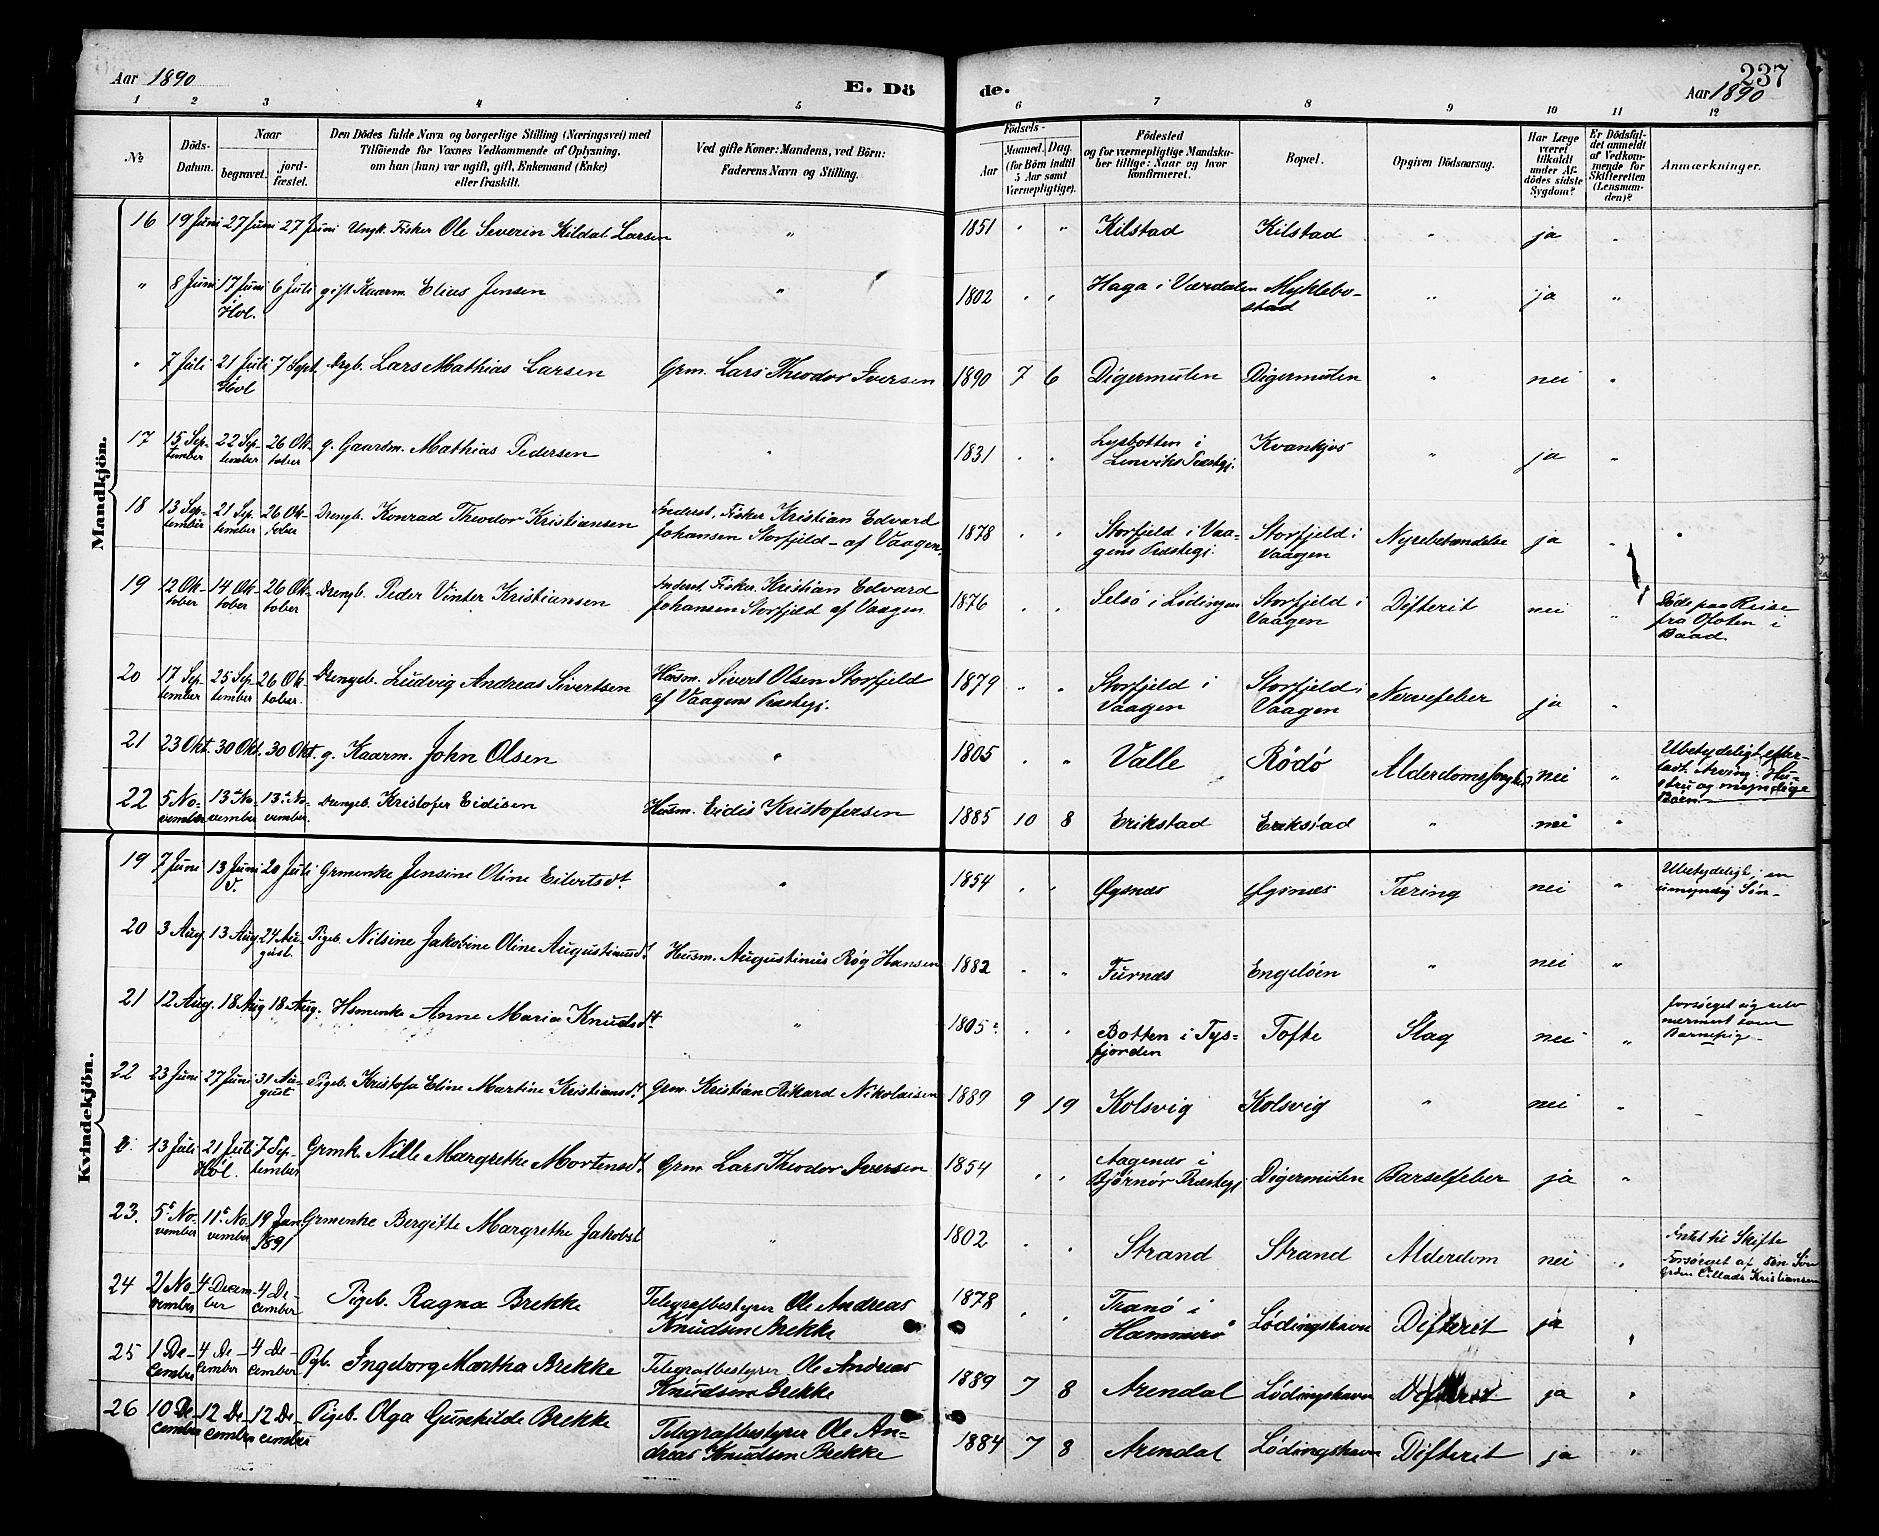 Aar 1890
E. Dö
de.
237
Aar 1890
1 2 3 4 5 6 7 8 9 10 11 12
No
Döds-Datum.
Naar
begravet.
jord-fæstet.
Den Dödes fulde Navn og borgerlige Stilling (Næringsvei) med
Tilföiende for Voxnes Vedkommende af Oplysning,
om han (hun) var ugift, gift, Enkemand (Enke)
eller fraskilt.
Ved gifte Koner: Mandens, ved Börn:
Faderens Navn og Stilling.
Födsels-
Aar
Maaned. Dag.
(for Börn indtil
5 Aar samt
Værnepligtige).
Födested
og for værnepligtige Mandska-
ber tillige: Naar og hvor
konfirmeret.
Bopæl.
Opgiven Dödsaarsag.
Har Læge
været
tilkaldt
under Af-
dödes sidste
Sygdom?
Er Dödsfal-
det anmeldt
af Vedkom-
mende for
Skifteretten
(Lensman-
den)?
Anmærkninger.
Mandkjön.
16 19 Juni 27 Juni 27 Juni Ungk. Fisker Ole Severin Kildal Larsen " 1851 " " Kilstad Kilstad " ja "
" 8 Juni 17 Juni i Hol. 6 Juli gift Kaarm. Elias Jensen " 1802 " " Haga i Værdalen Myklebo-
stad " ja "
" 7 Juli 21 Juli Hol 7 Sept. Drgb. Lars Mathias Larsen Grm. Lars Theodor Iversen 1890 7 6 Digermulen Digermulen " nei "
17 15 Sep-
tember 22 Sep-
tember 26 Ok-
tober g. Gaardm. Mathias Pedersen " 1831 " " Lysbotten i
Lenviks Præstegj. Kvankjos " ja "
18 13 Sep-
tember 21 Sep-
tember 26 Ok-
tober Drengb. Konrad Theodor Kristiansen Inderst, Fisker Kristian Edvard
Johansen Storfjeld - af Vaagen. 1878 " " Storfjeld i Vaa-
gens Præstegj. Storfjeld i
Vaagen Nyrebetændelse ja " "
19 12 Ok-
tober 14 Ok-
tober 26 Ok-
tober Drengb. Peder Vinter Kristiansen Inderst Fisker Kristian Edvard
Johansen Storfjeld af Vaagen 1876 " " Selsö i Lödingen Storfjeld i
Vaagen Difterit nei " Döde paa Reise
fra Ofoten i
Baad.
20 17 Sep-
tember 25 Sep-
tember 26 Ok-
tober. Drengeb. Ludvig Andreas Sivertsen Husm. Sivert Olsen Storfjeld
af Vaagens Præstegj. 1879 " " Storfjeld i
Vaagen Storfjeld i
Vaagen Nervefeber ja "
21 23 Okt. 30 Okt. 30 Okt. g. Kaarm. John Olsen " 1805 " " Valle Rödö nei " Ubetydeligt efter-
ladt. Arving: Hu-
stru og myndige
Børn.
22 5 No-
vember 13de No-
vember 13de No-
vember. Drengeb. Kristofer Eidisen Husm. Eidis Kristofersen 1885 10 8 Erikstad Erikstad " nei "
Kvindekjön.
19 7 Juni 13 Juni 20 Juli Grmenke Jensine Oline Eilertsdt. " 1854 " " Øgsnæs Øgsnæs Tæring nei " Ubetydeligt; en
umyndig Søn-
20 3 Aug. 13 Aug 24 Au-
gust. Pigeb. Nilsine Jakobine Oline Augustinusdt. Husm. Augustinus Røg Hansen 1882 " " Furnæs Engelöen " nei "
21 12 Aug. 18 Aug 18 Aug. Hsmenke Anne Maria Knudsdt. " 1805 " " Botten i Tys-
fjorden Tofte Slag nei " forsørget sig selv
nærmest som
Barnepige
22 23 Juni 27 Juni 31 Au-
gust Pigeb. Kristofa Eline Martine Kristiansdt. Grm. Kristian Rikard Nikolaisen 1889 9 19 Kolsvig Kolsvig " nei "
13 Juli 21 Juli Hol. 7 Sep-
tember Grmk. Nille Margrethe Mortensdt. Grm. Lars Theodor Iversen 1854 " " Aagenes i
Bjørnør Præstegj. Digermulen Barselfeber ja "
23. 5te No-
vember 11te No-
vember 19 Jan
1891 Grmenke Bergitte Margrethe Jakobsd " 1802 " " Strand Strand Alderdom nei " Intet til Skifte
Forsørget af sin Søn
Kristiansen
24 21 No-
vember 4 Decem-
ber 4 De-
cember Pigeb. Ragna Brekke Telegrafbestyrer Ole Andreas
Knudsen Brekke 1878 " " Tranö i
Hammerö Lödingshavn Difterit ja "
25 1 De-
cember 4 De-
cember 4 De-
cember Pgb. Ingeborg Martha Brekke Telegrafbestyrer Ole Andreas
Knudsen Brekke 1889 7 8 Arendal Lödingshavn Difterit ja "
26 10 De-
cember 12 De-
cember 12 De-
cember Pigeb. Olga Gunhilde Brekke Telegrafbestyrer Ole An-
dreas Knudsen Brekke 1884 7 8 Arendal Lödingshavn Difterit ja "